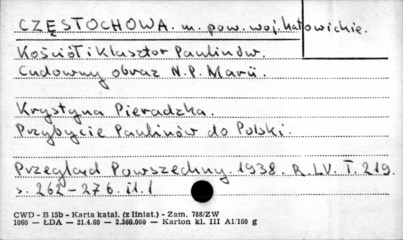 CZĘSTOCHOWA. m. pow. woj. katowickie.
Kościół i klasztor Paulinów.
Cudowny obraz N.P. Marii.
Krystyna Pieradzka.
Przybycie Paulinów do Polski.
Przegląd Powszechny 1938. R. LV. T. 219.
s. 262-276. il. 1
CWD - B 15b - Karta katal. (z liniat.) - Zam. 788/ZW
1060 — ŁDA — 21.4.60 — 2.360.000 — Karton kl. III A1/160 g